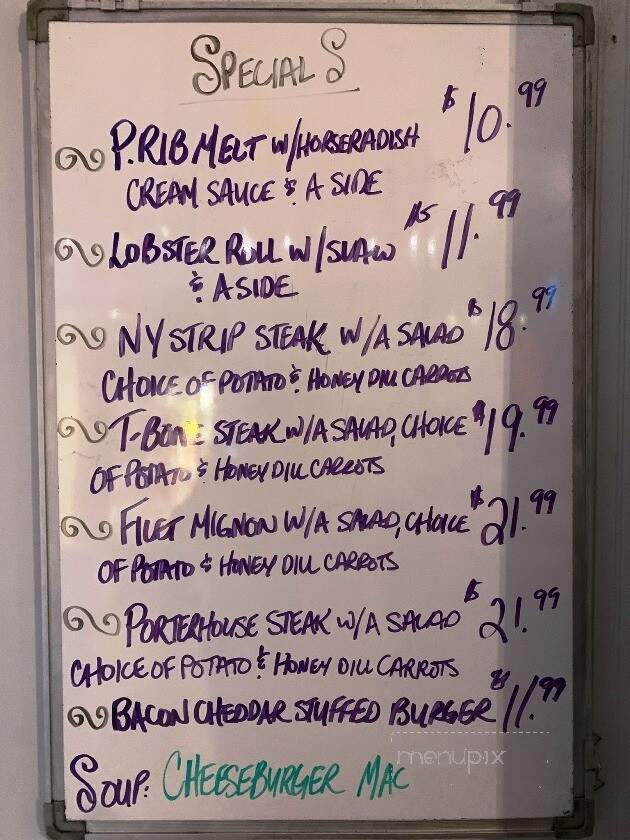 SPECIALS
P. RIB MELT W/HORSERADISH $10.99
CREAM SAUCE & A SIDE
LOBSTER ROLL W/SLAW $11.99
& A SIDE
NY STRIP STEAK W/A SALAD $18.99
CHOICE OF POTATO & HONEY DILL CARROTS
T-BONE STEAK W/A SALAD, CHOICE $19.99
OF POTATO & HONEY DILL CARROTS
FILET MIGNON W/A SALAD, CHOICE $21.99
OF POTATO & HONEY DILL CARROTS
PORTERHOUSE STEAK W/A SALAD $21.99
CHOICE OF POTATO & HONEY DILL CARROTS
BACON CHEDDAR STUFFED BURGER $11.99
menupix
SOUP: CHEESEBURGER MAC